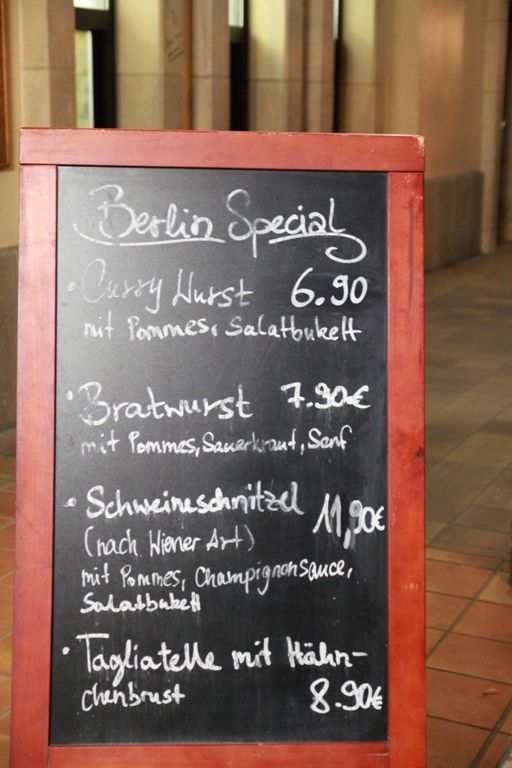 Berlin Special
• Curry Wurst 6.90
mit Pommes, Salatbukett
• Bratwurst 7.90€
mit Pommes, Sauerkraut, Senf
• Schweineschnitzel 11,90€
(nach Wiener Art)
mit Pommes, Champignonsauce,
Salatbukett
• Tagliatelle mit Hähn-
chenbrust 8.90€